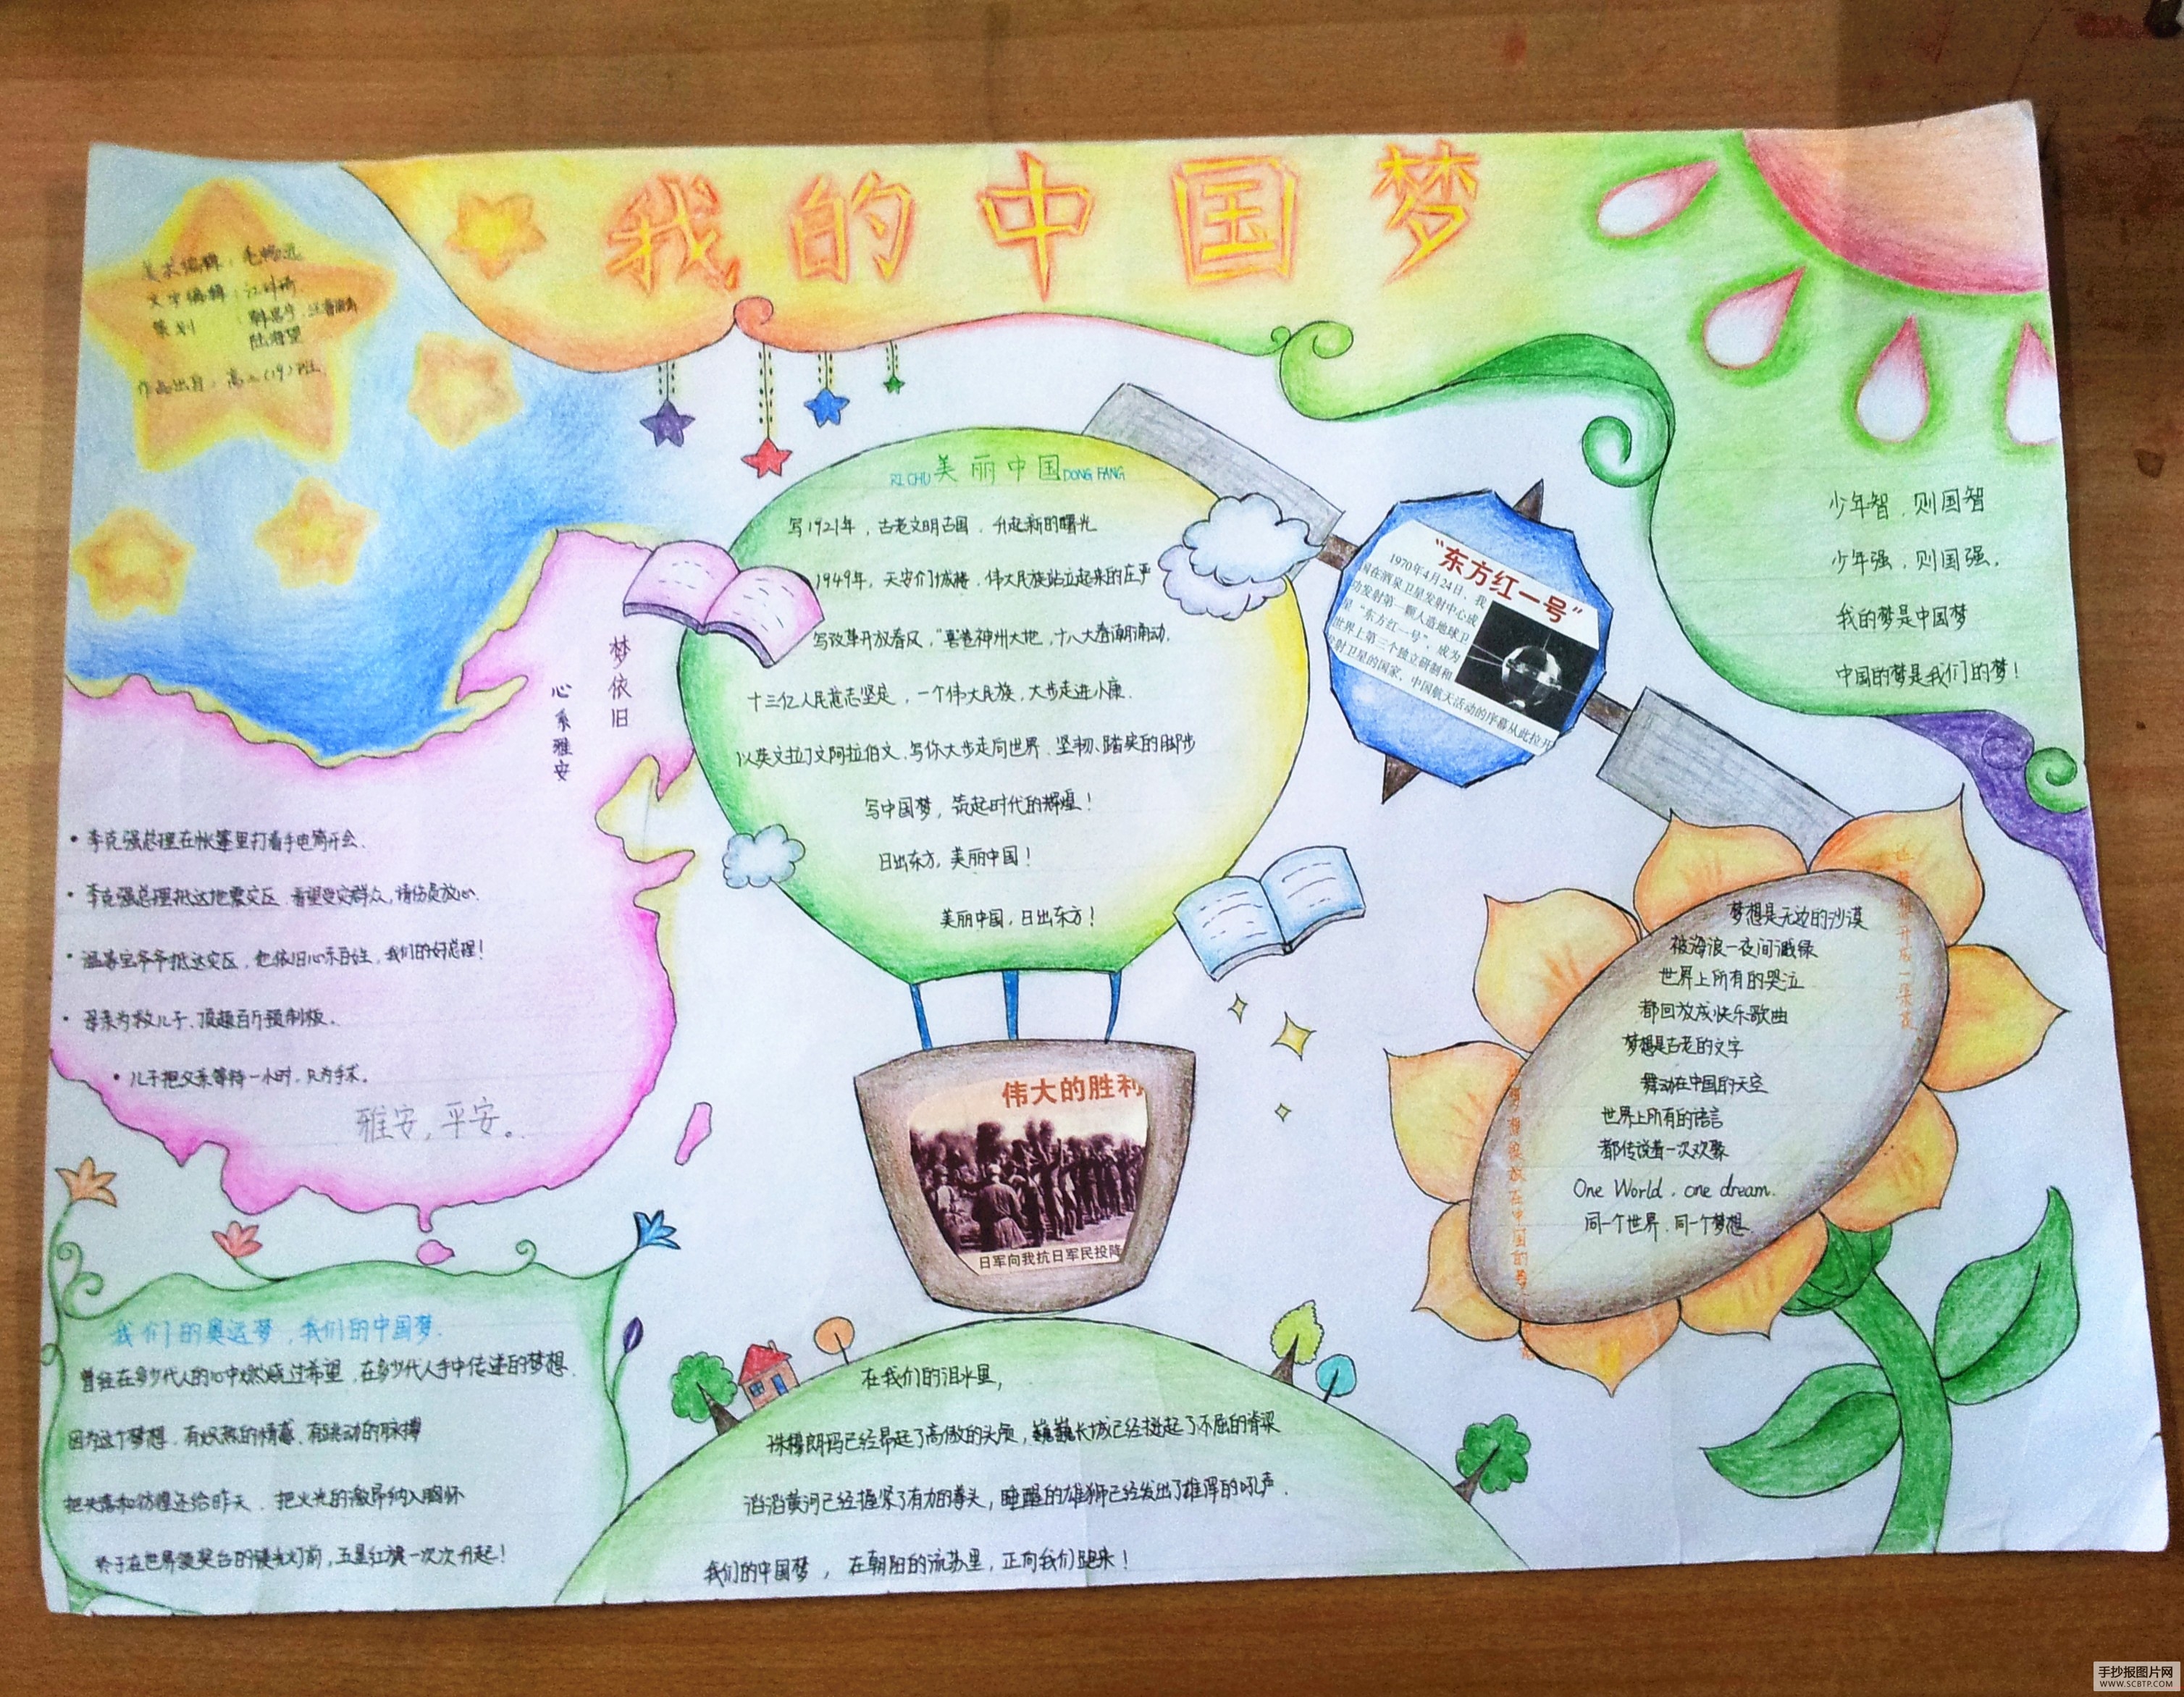 我的中国梦
美术编辑：毛
文字编辑：江
策划：
陆海望
作品出自：高二(19)班
RI CHU 美丽中国 DONG FANG
写1921年，古老文明古国，升起新的曙光
1949年，天安门城楼，伟大民族站立起来的庄严
写改革开放春风，“喜卷神州大地，十八大春潮涌动，
十三亿人民意志坚定，一个伟大民族，大步走进小康．
以英文拉丁文阿拉伯文，写你大步走向世界，坚韧、踏实的脚步
写中国梦，筑起时代的辉煌！
日出东方，美丽中国！
美丽中国，日出东方！
“东方红一号”
1970年4月24日，我
国在酒泉卫星发射中心成
功发射第一颗人造地球卫
星“东方红一号”，成为
世界上第三个独立研制和
发射卫星的国家，中国航天活动的序幕从此拉开
少年智，则国智
少年强，则国强，
我的梦是中国梦
中国的梦是我们的梦！
梦依旧
心系雅安
·李克强总理在帐篷里打着手电筒开会．
·李克强总理抵达地震灾区，看望受灾群众，请伤员放心．
·温家宝爷爷抵达灾区，他依旧心系百姓，我们的好总理！
·母亲为救儿子，顶起百斤预制板。
·儿子把父亲等待一小时，只为手术。
雅安，平安。
伟大的胜利
日军向我抗日军民投降
梦想是无边的沙漠
被海浪一夜间溅绿
世界上所有的哭泣
都回放成快乐歌曲
梦想是古老的文字
舞动在中国的天空
世界上所有的语言
都传说着一次欢聚
One World，one dream．
同一个世界，同一个梦想．
我们的奥运梦，我们的中国梦．
曾经在多少代人的心中燃烧过希望，在多少代人手中传递的梦想．
因为这个梦想，有炽热的情感，有跳动的脉搏
把失落和彷徨还给昨天，把火光的激昂纳入胸怀
终于在世界领奖台的镁光灯前，五星红旗一次次升起！
在我们的泪水里，
珠穆朗玛已经昂起了高傲的头颅，巍巍长城已经挺起了不屈的脊梁
滔滔黄河已经握紧了有力的拳头，睡醒的雄狮已经发出了雄浑的吼声．
我们的中国梦，在朝阳的流苏里，正向我们跑来！
手抄报图片网
WWW.SCBTP.COM